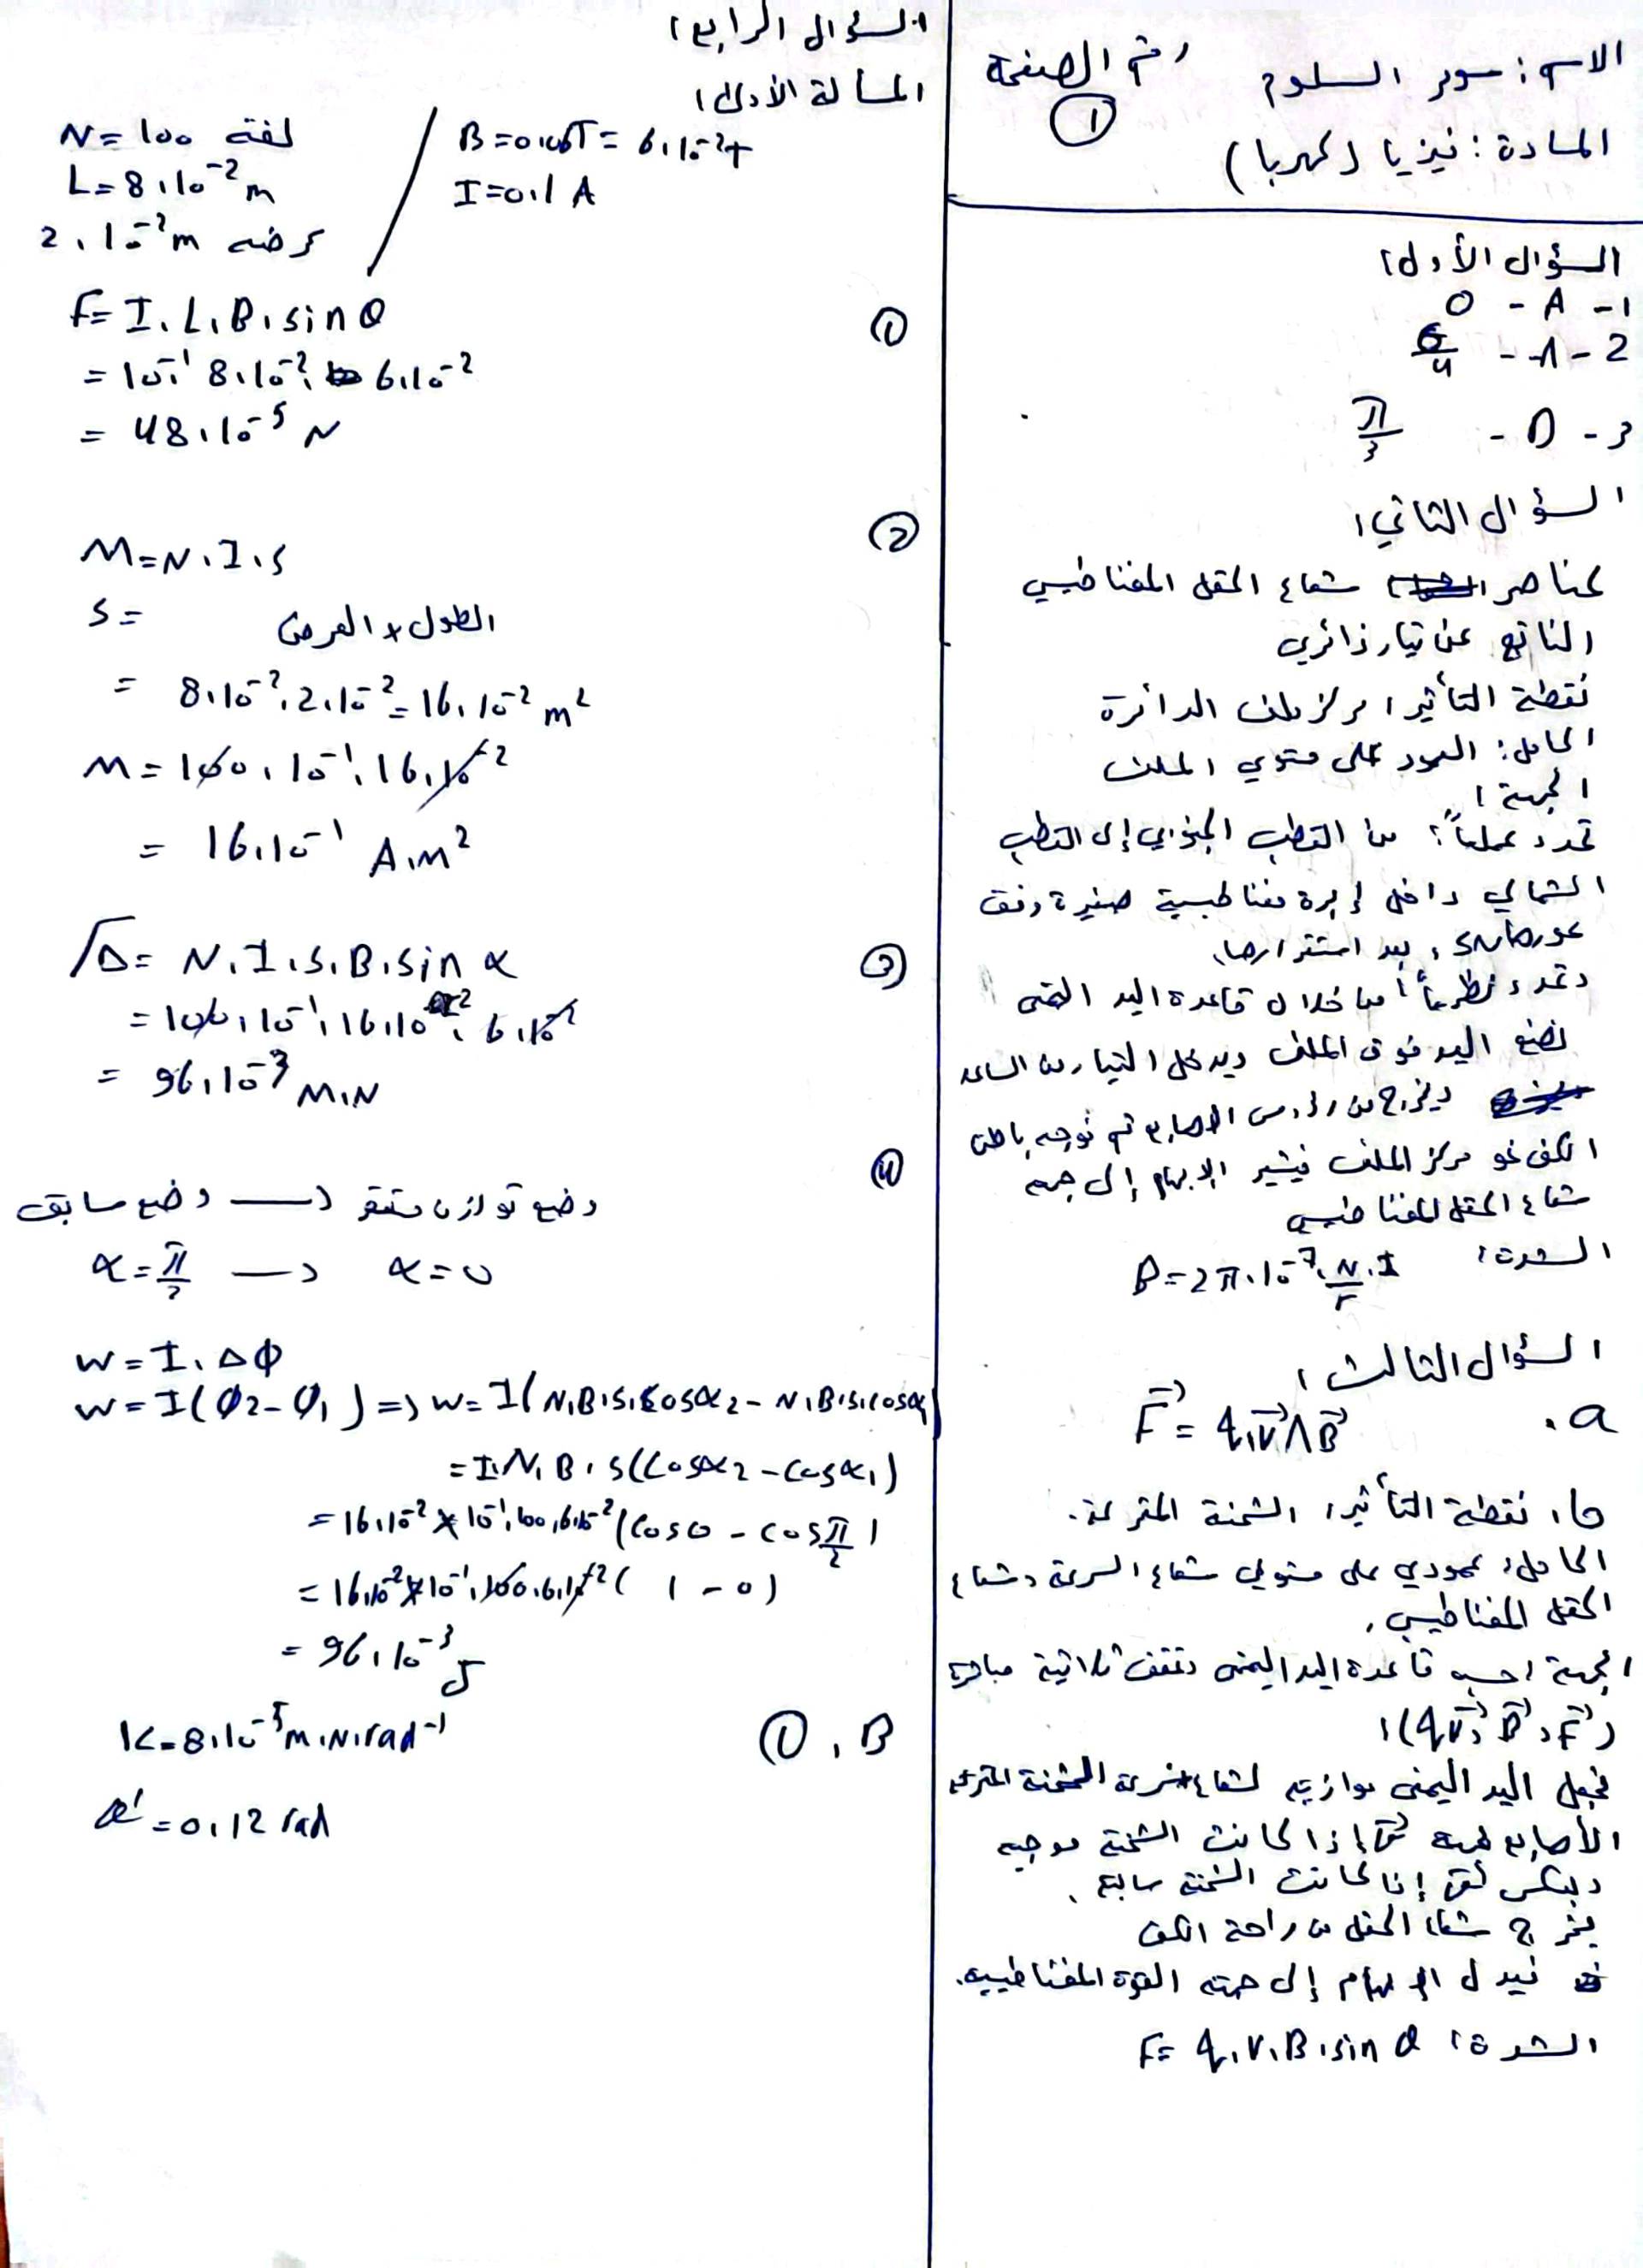 الاسم: سمر السلوم
رقم الصفحة
1
المادة: فيزيا (كهربا)
السؤال الأول:
1 - A - 0
2 - A - 6/4
3 - D - π/3
السؤال الثاني:
عناصر شعاع الحقل المغناطيسي
الناتج عن تيار دائري
نقطة التأثير: مركز ملف الدائرة
الحامل: العمود على مستوي الملف
الجهة:
تحدد عملياً: من القطب الجنوبي إلى القطب
الشمالي داخل إبرة مغناطيسية صغيرة وفق
محورها SN، بعد استقرارها.
وتحدد نظرياً من خلال قاعدة اليد اليمنى
نضع اليد فوق الملف ويدخل التيار من الساعد
ويخرج من رؤوس الاصابع ثم نوجه باطن
الكف نحو مركز الملف فيشير الابهام إلى جهة
شعاع الحقل المغناطيسي
الشدة: B = 2π.10⁻⁷. N.I/r
السؤال الثالث:
a. F⃗ = q.v⃗ Λ B⃗
b. نقطة التأثير: الشحنة المتحركة.
الحامل: عمودي على مستوي شعاع السرعة وشعاع
الحقل المغناطيسي.
الجهة: حسب قاعدة اليد اليمنى وتحقق ثلاثية مباشرة
(qv⃗, B⃗, F⃗):
نجعل اليد اليمنى موازية لشعاع سرعة الشحنة المتحركة
الأصابع بجهة v⃗ إذا كانت الشحنة موجبة
وبعكس v⃗ إذا كانت الشحنة سالبة.
يخرج شعاع الحقل من راحة الكف
فيدل الإبهام إلى جهة القوة المغناطيسية.
الشدة: F = q.v.B.sin θ
السؤال الرابع:
المسألة الأولى:
N = 100 لفة
B = 0.06T = 6.10⁻² T
L = 8.10⁻² m
I = 0.1 A
عرضه 2.10⁻² m
① F = I.L.B.sin θ
= 10⁻¹. 8.10⁻². 6.10⁻²
= 48.10⁻⁵ N
② M = N.I.S
S = الطول × العرض
= 8.10⁻². 2.10⁻² = 16.10⁻² m²
M = 100. 10⁻¹. 16.10⁻²
= 16.10⁻¹ A.m²
③ Γ∆ = N.I.S.B.sin α
= 100.10⁻¹.16.10⁻². 6.10⁻²
= 96.10⁻³ m.N
④ وضع سابق → وضع توازن مستقر
α = π/2 → α = 0
W = I.∆Φ
W = I(Φ2 - Φ1) => W = I(N.B.S.cosα2 - N.B.S.cosα1)
= I.N.B.S(cosα2 - cosα1)
= 16.10⁻² × 10⁻¹.100.6.10⁻² (cos 0 - cos π/2)
= 16.10⁻² × 10⁻¹.100.6.10⁻² (1 - 0)
= 96.10⁻³ J
B. ①
K = 8.10⁻⁵ m.N.rad⁻¹
θ' = 0.12 rad